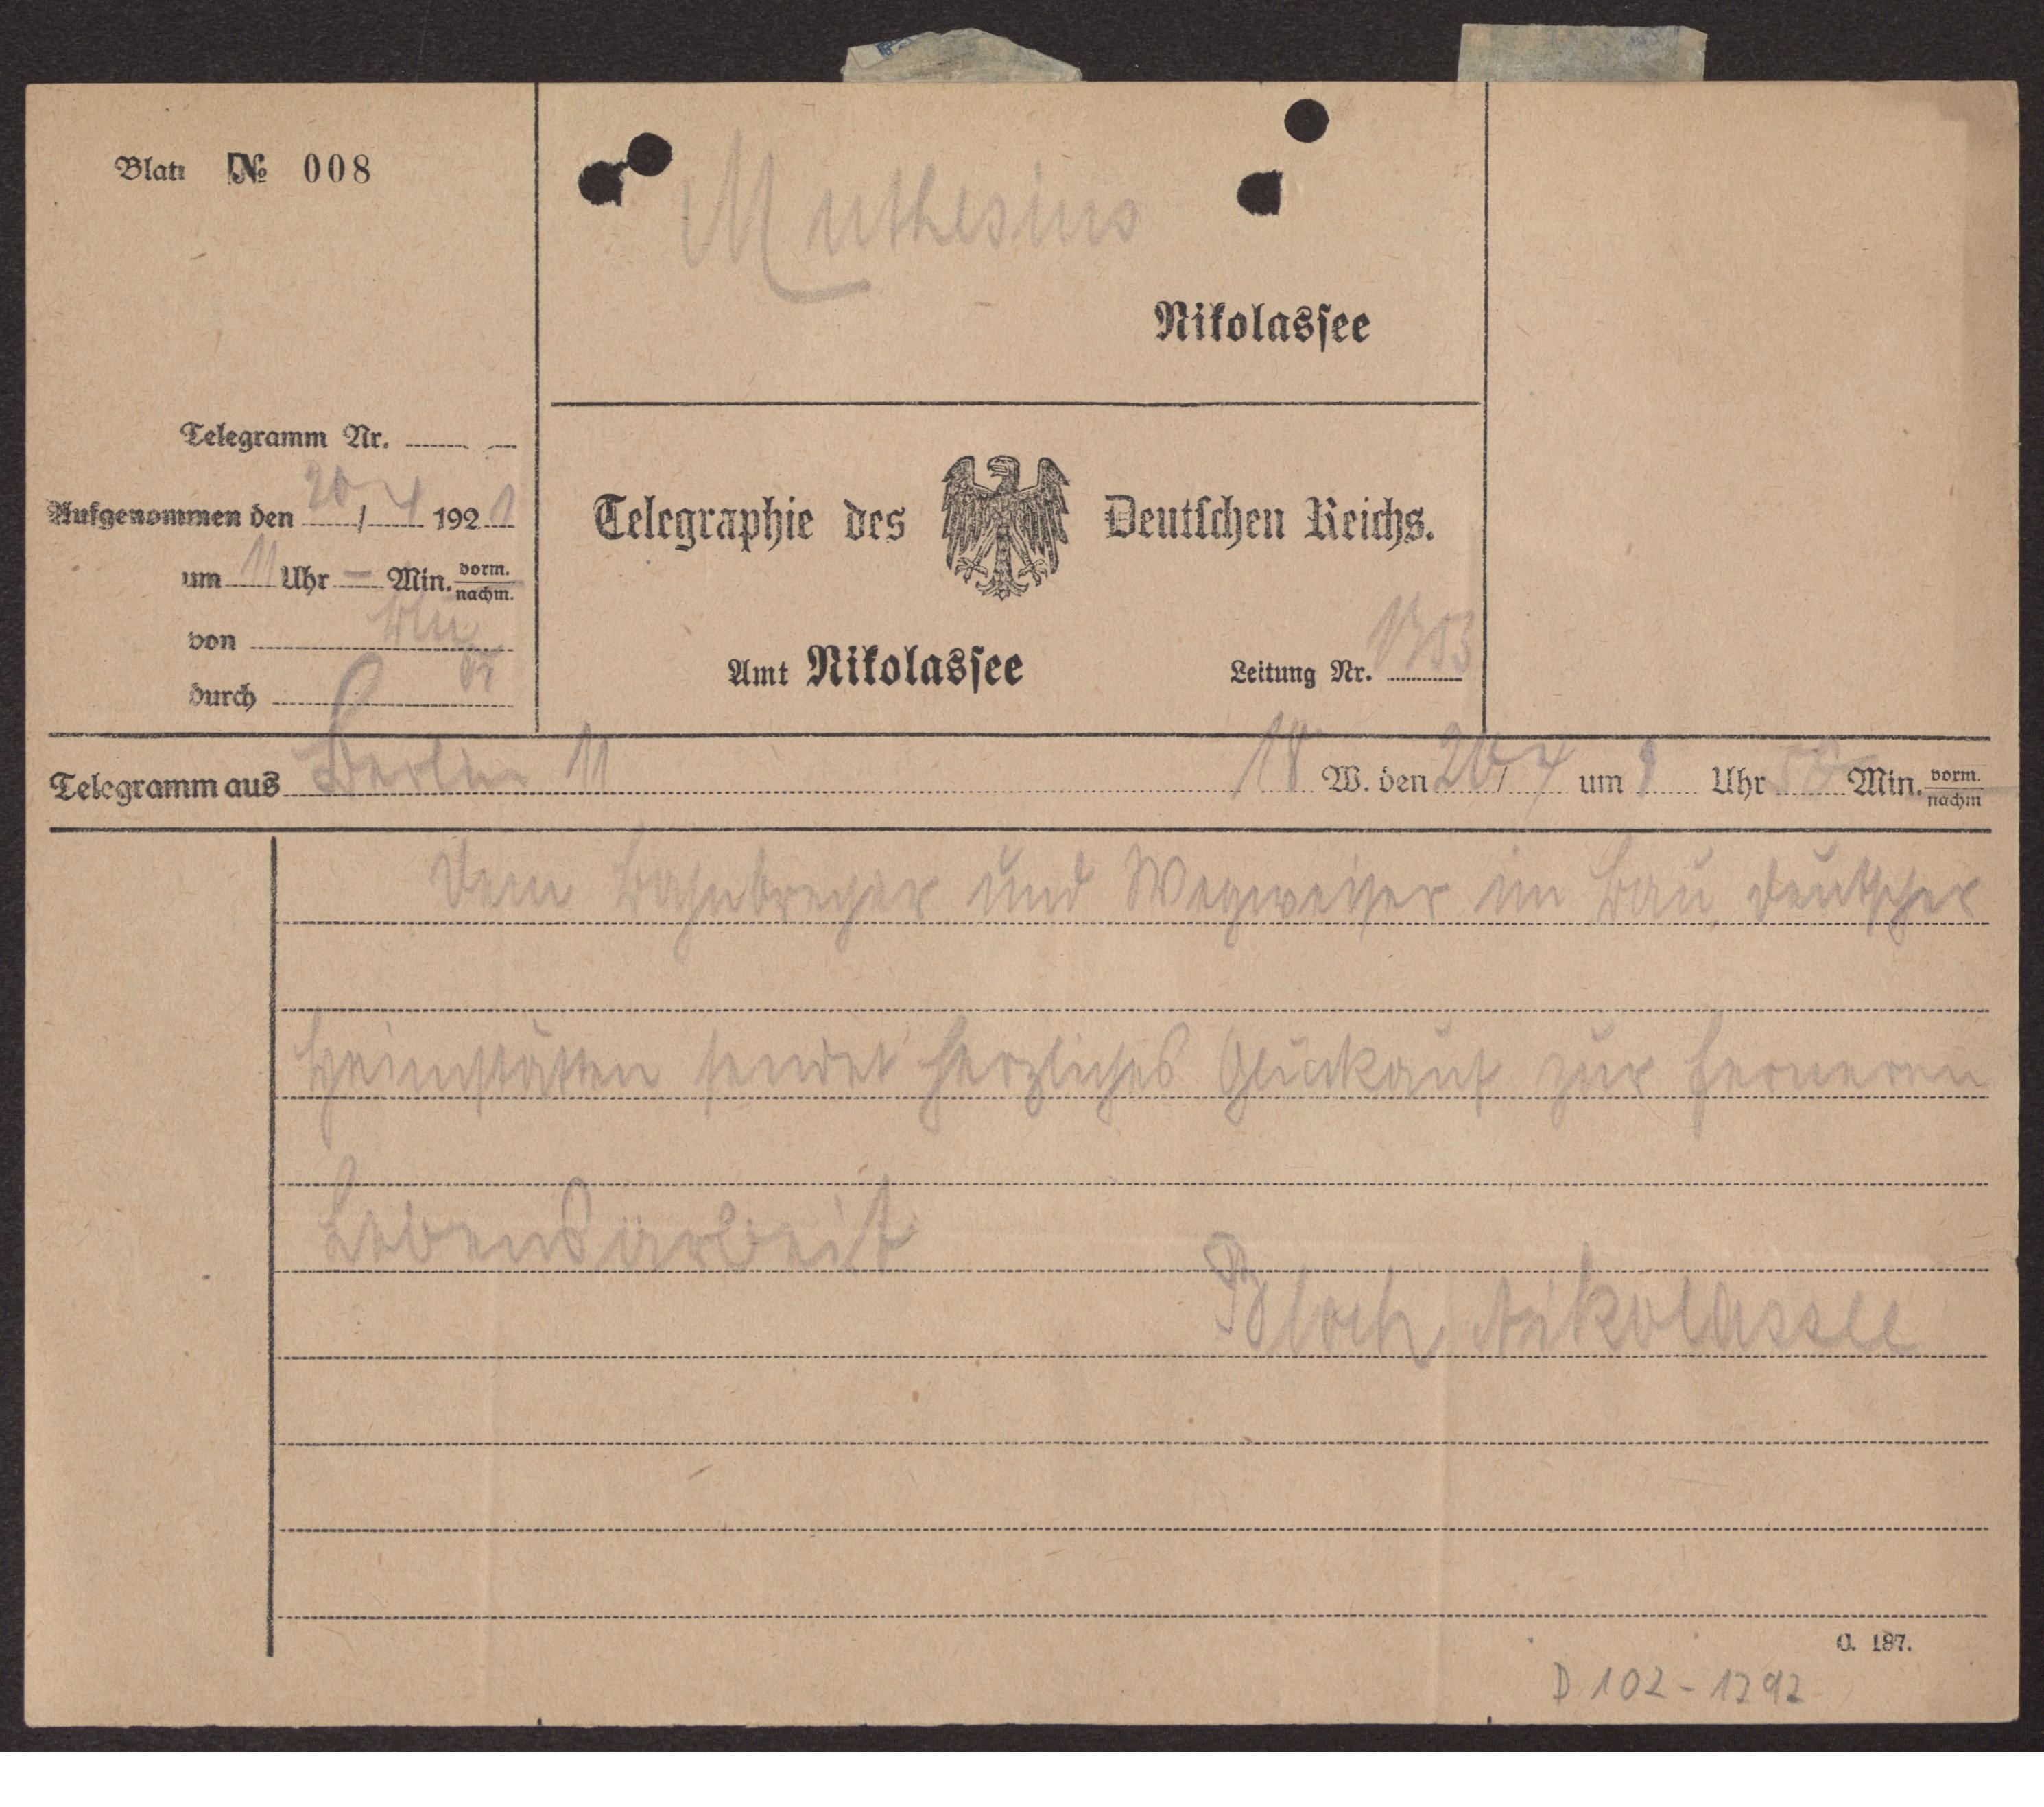 Blatt № 008
Muthesius
Nikolassee
Telegramm Nr.
Aufgenommen den 20/4 1921
um 11 Uhr – Min. vorm. nachm.
von Bln
durch
Telegraphie des Deutschen Reichs.
Amt Nikolassee Leitung Nr.
Telegramm aus Berlin 11 18 W. den 20/4 um 9 Uhr 58 Min. vorm. nachm
Dem Bahnbrecher und Wegweiser im Bau deutscher
Heimstätten sendet herzliches Glückauf zur ferneren
Lebensarbeit
Bloch Nikolassee
O. 187.
D 102 - 1292